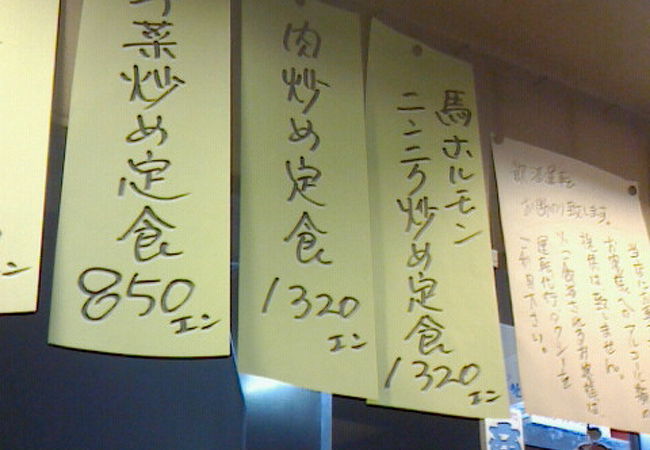 菜炒め定食
850エン
肉炒め定食
1320エン
馬ホルモン
ニンニク炒め定食
1320エン
飲酒運転
お断り致します。
お客様へのアルコール類の
提供は致しません。
運転代行、タクシーを
ご利用下さい。
エン